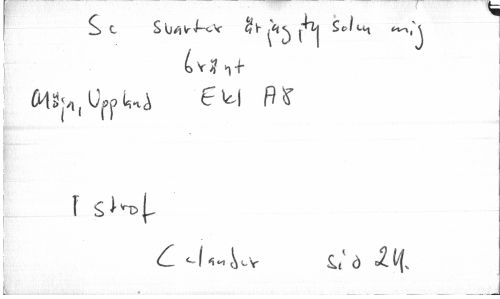 Se svarter är jag, ty solen mig
bränt
Möja, Uppland Ekl A8
1 strof
Celander sid 24.